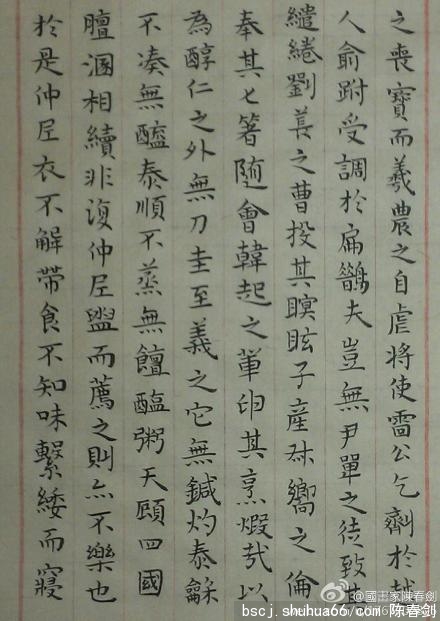 之喪寶而羲農之自虐將使雷公乞劑於越
人俞跗受調於扁鵲夫豈無尹單之徒致其
繾綣劉萇之曹投其瞑眩子產叔嚮之倫
奉其匕箸隨會韓起之其烹煆哉以
為醇仁之外無刀圭至義之它無鍼灼泰龢
不凑無醯泰順不蒸無饘醢粥天顧四國
膻溷相續非復仲尼盥而薦之則亦不樂也
於是仲尼衣不解帶食不知味緌而寢
@國畫家陳春劍
bscj.shuhua66.com 陈春剑